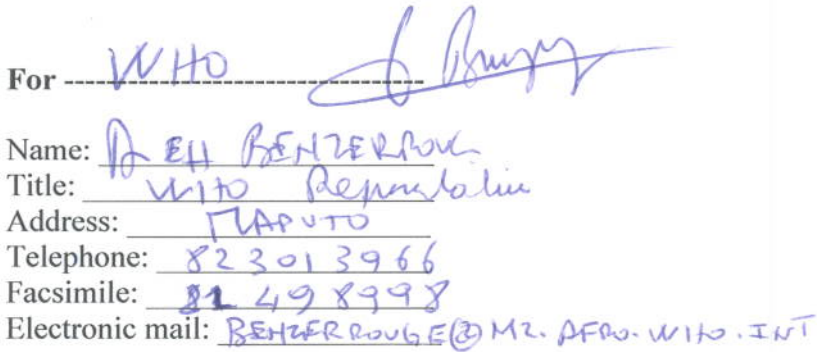 For WHO
Name: Dr EH BENZERROUG
Title: WHO Representative
Address: MAPUTO
Telephone: 823013966
Facsimile: 21 498998
Electronic mail: BENZERROUGE@MZ.AFRO.WHO.INT